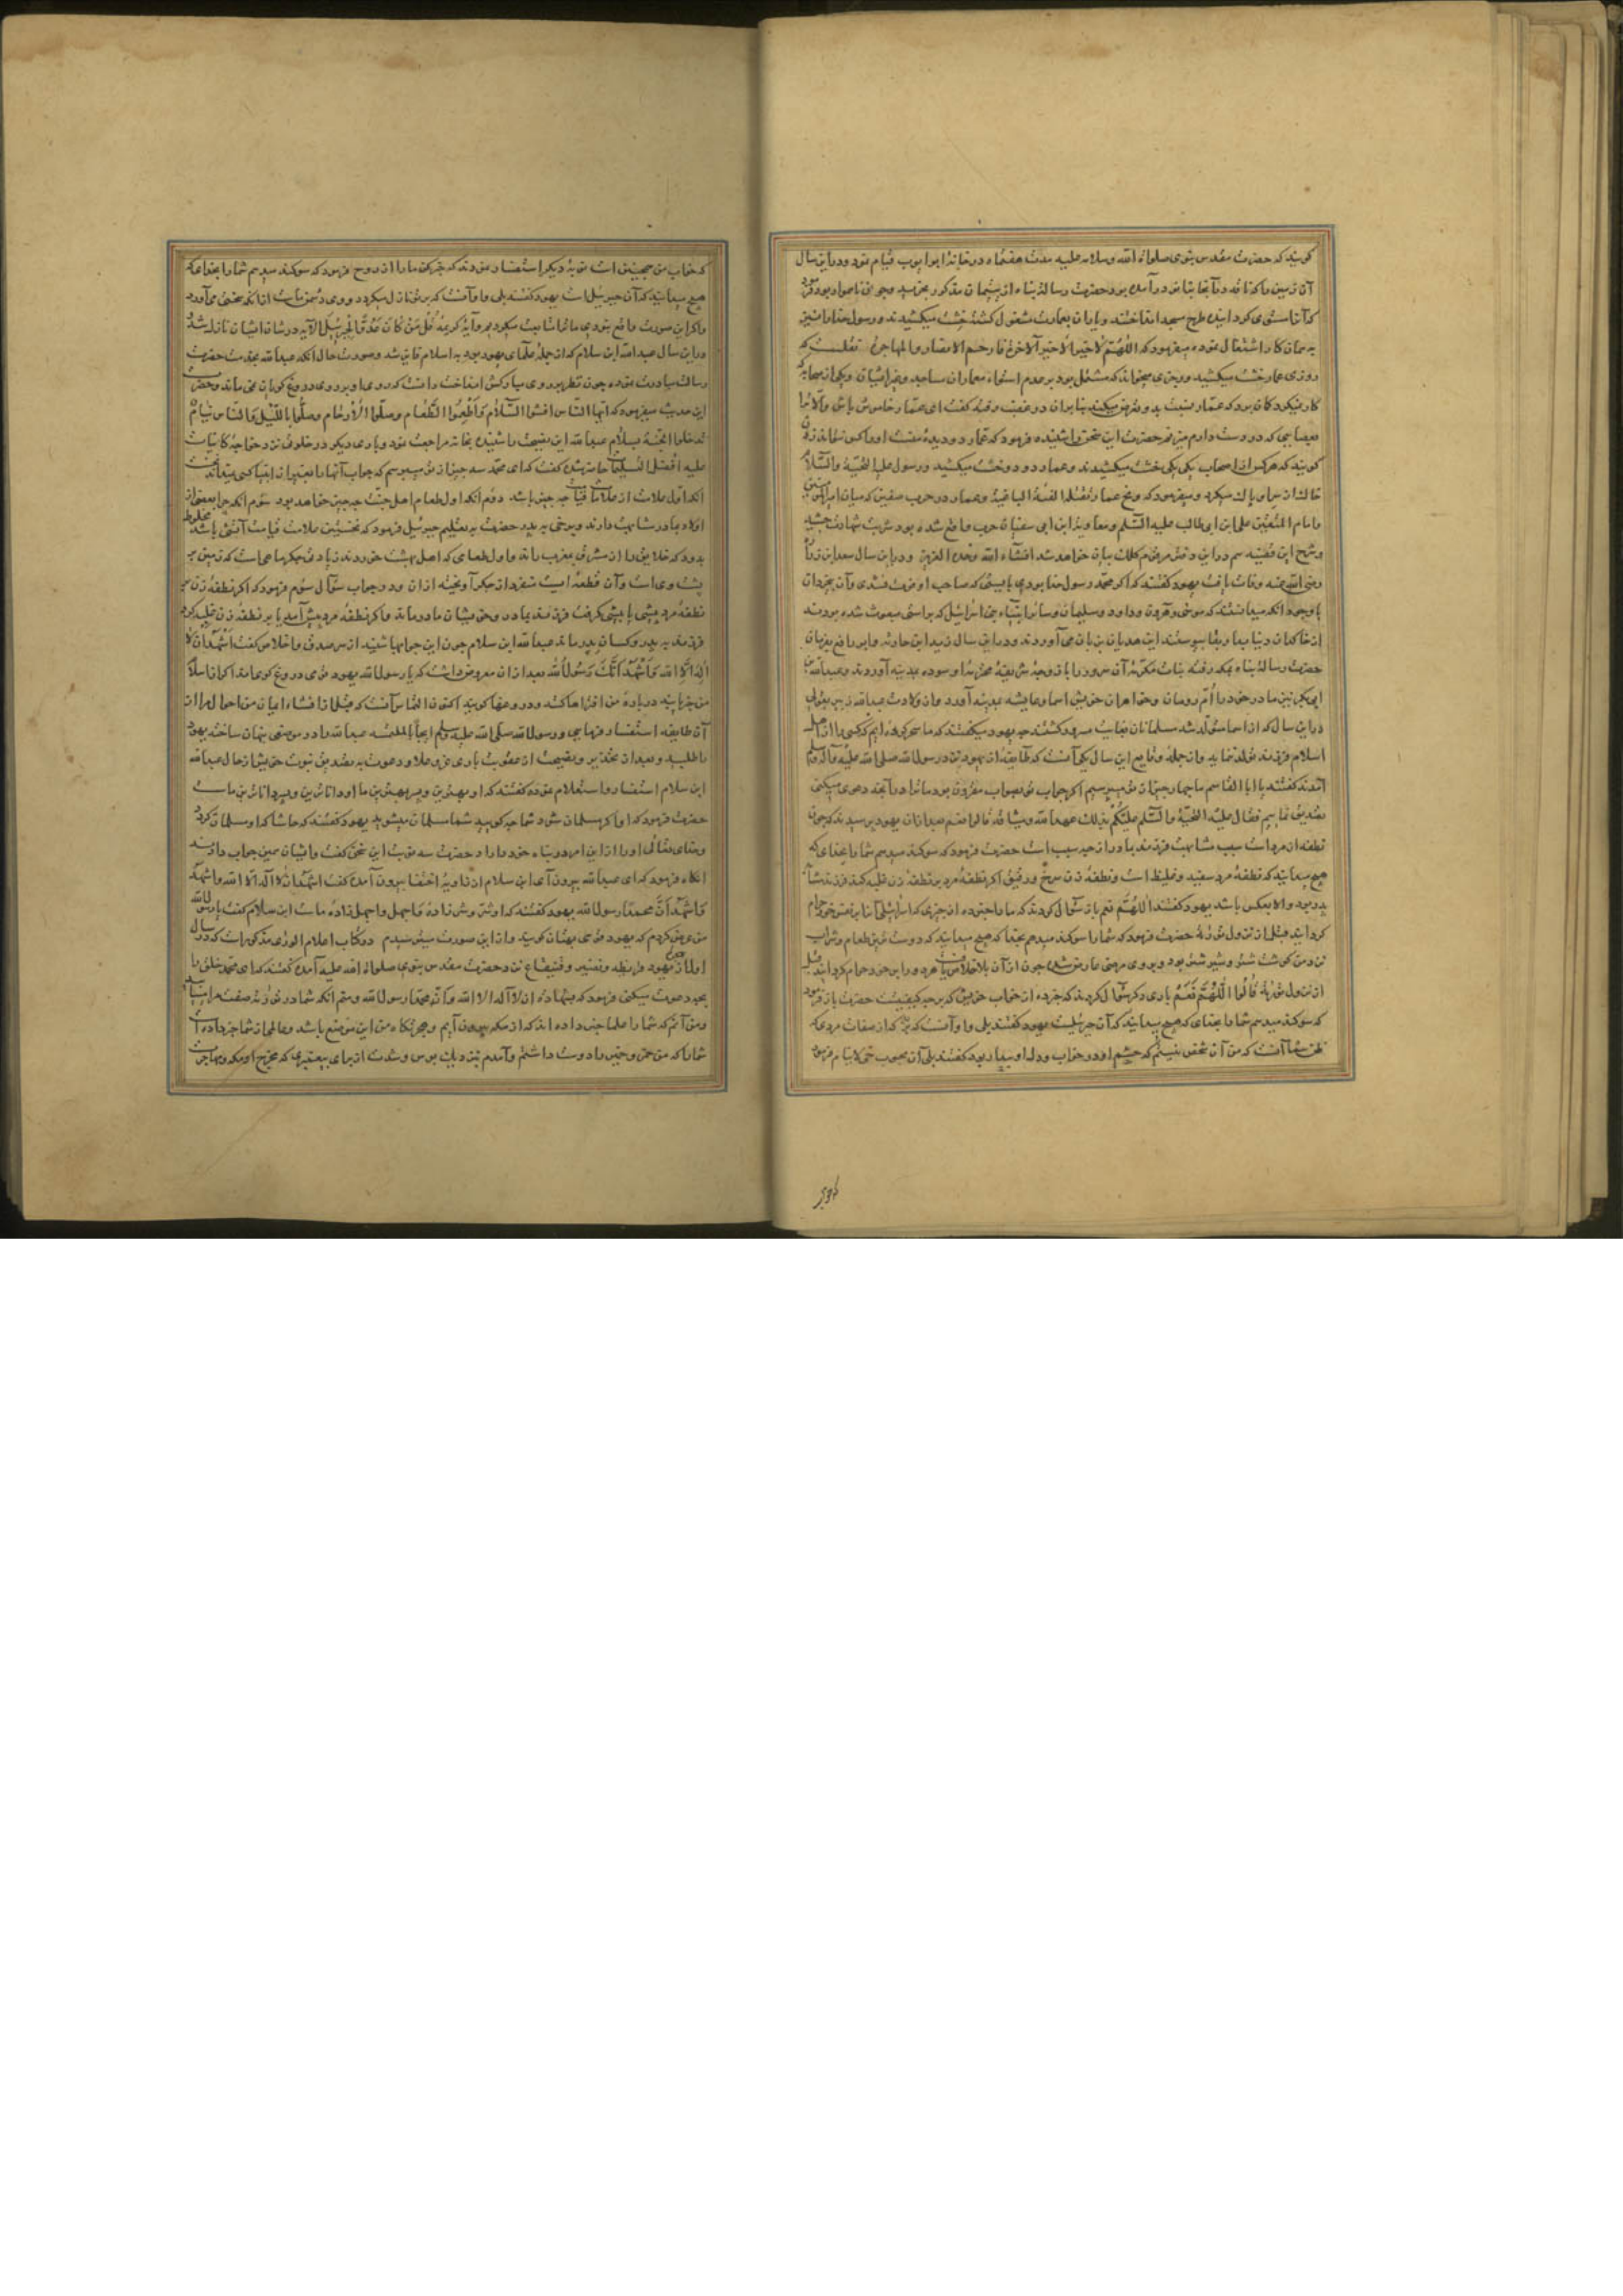 کویند که حضرت مقدس نبوی صلواة الله وسلامه علیه مدت هفتماه در خانهٔ ابو ایوب قیام نمود ودراین سال
آن زمین را که ناقه در آنجا بخانو درآمده بود حضرت رسالة پناه از یتیمان مذکور بخرید وچون ناهموار بود فرمود
که آنرا مستوی کردانیده طرح مسجد انداختند ویاران بعمارت مشغول کشته خشت میکشیدند ورسول خدا با نیز
به همان کار اشتغال نموده میفرمود که اللهم لاخیر الاخیر الآخرة فارحم الانصار والمهاجرة نقلست که
روزی عمار خشت میکشید ورجزی میخواند که مشتمل بود بر عدم استواء معماران مساجد وغیر ایشان ویکی از صحابه که
کار نمیکرد کمان برد که عمار نسبت بدو تعریض میکند بنا بران در غضب رفته کفت ای عمار خاموش باش والا ترا
بعصایی که در دست دارم میزنم حضرت این سخن را شنیده فرمود که عمار دو دیدهٔ منست
کویند که هرکس از اصحاب یکی یکی خشت میکشیدند وعمار دو دو خشت میکشید ورسول علیه التحیة والسلام
خاک از سر او پاک میکرد ومیفرمود که ویح عمار تقتله الفئة الباغیة وعمار در حرب صفین که میان امیر المؤمنین
وامام المتقین علی ابن ابی طالب علیه السلم ومعاویة ابن ابی سفیان حرب واقع شده بود شربت شهادت چشید
وشرح این قضیه هم دراین دفتر مرقوم کلک بیان خواهد شد انشاء الله وحده العزیز ودراین سال سعد ابن زراره
رضی الله عنه وفات یافت یهود کفتند که اکر محمد رسول خدا بودی بایستی که صاحب او فوت نشدی وآن بیخردان
با وجود آنکه میدانستند که موسی وهرون وداود وسلیمان وسائر انبیاء بنی اسرائیل که براستی مبعوث شده بودند
از خاکدان دنیا بدار بقا پیوستند این هذیان بر زبان می آوردند ودراین سال زید ابن حارثه وابو رافع بفرمان
حضرت رسالة پناه بمکه رفته بنات مکرمهٔ آن سرور را با زوجهٔ شریفهٔ محترمه او سوده بمدینه آوردند وعبدالله بن
ابی بکر نیز مادر خود را ام رومان وخواهران خویش اسما وعایشه بمدینه آورد وازن ولادت عبدالله زبیر بقولی
دراین سال که از اسما متولد شد مسلمانان بغایت مسرور کشتند چه یهود میکفتند که ما سحر کرده ایم که کسی را از اهل
اسلام فرزند متولد نشاید واز جمله وقایع این سال یکی آنست که طایفهٔ از یهود نزد رسول الله صلی الله علیه وآله وسلم
آمدند کفتند یا ابا القاسم ما چهار چیز از تو میپرسیم اکر جواب تو بصواب مقرون بود ما ترا در آنچه دعوی میکنی
تصدیق نماییم فقال علیه التحیة والسلم علیکم بذلک عهد الله ومیثاقه قالوا نعم بعد ازان یهود پرسیدند که چون
نطفه از مرد است سبب مشابهت فرزند بمادر از چه سبب است حضرت فرمود که سوکند میدهم شما را بخدای که
هیچ میدانید که نطفهٔ مرد سفید وغلیظ است ونطفهٔ زن سرخ ورقیق اکر نطفهٔ مرد بر نطفهٔ زن غلبه کند فرزند مشابه
پدر بود والا بعکس باشد یهود کفتند اللهم نعم باز سؤال کردند که ما را خبر ده از چیزی که اسرائیل آنرا بر نفس خود حرام
کردانید قبل از نزول توریة حضرت فرمود که شما را سوکند میدهم بخدا که هیچ میدانید که دوست ترین طعام وشراب
نزد من کوشت شتر وشیر شتر بود وبروی مرضی عارض شد چون از آن بلا خلاص یافت هر دو را بر خود حرام کردانید قبل
از نزول توریة قالوا اللهم نعم باری دکر سؤال کردند که خبر ده از خواب خویش که بر چه کیفیت حضرت باز فرمود
که سوکند میدهم شما را بخدای که هیچ میدانید که آن جبرئیلست یهود کفتند بلی وازآنست که از صفات مردی که
ظن شما آنست که من آن شخص نیستم که چشم او در خواب ودل او بیدار بود کفتند بلی آن محبوب حی لاینام فرمود
که خواب من همچنین است نوبهٔ دیکر استفسار نمودند که خبر کن ما را از روح فرمود که سوکند میدهم شما را بخدای که
هیچ میدانید که آن جبرئیل است یهود کفتند بلی وازآنست که بر تو نازل میکردد ووی دشمن ماست از آنکه سختی می آورد
واکر این صورت واقع نبودی ما ترا متابعت میکردیم وآیهٔ کریمه قُل مَن کان عدوا لجبریل الآیه در شان ایشان نازل شد
دراین سال عبدالله ابن سلام که از جملهٔ علمای یهود بود به اسلام فایز شد وصورت حال آنکه عبدالله بخدمت حضرت
رسالت مبادرت نموده چون نظر بر روی مبارکش انداخت دانست که روی او بر روی دروغ کویان نمی ماند وحضرت
این حدیث میفرمود که ایها الناس افشوا السلام واطعموا الطعام وصلوا الارحام وصلوا باللیل والناس نیام
تدخلوا الجنة بسلام عبدالله این نصیحت را شنیده بخانه مراجعت نمود وباری دیکر در خلوت نزد خواجهٔ کاینات
علیه افضل التسلیمات حاضر شده کفت که ای محمد سه چیز از تو میپرسم که جواب آنها را بغیر از انبیا کسی نمیداند نخست
آنکه اول علامت از علامات قیامت چه چیز باشد دوم آنکه اول طعام اهل جنت چه چیز خواهد بود سوم آنکه چرا بعضی از
اولاد بمادر مشابهت دارند وبرخی به پدر حضرت به تعلیم جبرئیل فرمود که نخستین علامت قیامت آتشی باشد مخلوط
بدود که خلایق را از مشرق بمغرب راند واول طعامی که اهل بهشت خورند زیادتی جکر ماهی است که زمین بر
پشت وی است وآن قطعه ایست منفرد از جکر آویخته ازان ودر جواب سؤال سوم فرمود که اکر نطفهٔ زن بر
نطفهٔ مرد پیشی یا بیشی کرفت فرزند بمادر وخویشان مادر ماند واکر نطفهٔ مرد پیش آمد یا بر نطفهٔ زن غلبه کرد
فرزند به پدر وکسان پدر ماند عبدالله ابن سلام چون این جوابها شنید از سر صدق واخلاص کفت اشهد ان لا
اله الا الله واشهد انک رسول الله بعد ازان معروض داشت که یا رسول الله یهود قومی دروغ کوی اند اکر از اسلام
من خبر یابند در بارهٔ من افتراها کنند ودروغها کویند اکنون التماس آنست که قبل از افشاء ایمان من احوال مرا از
آن طایفه استفسار فرمایی ورسول الله صلی الله علیه وسلم ایجابا لملتمسه عبدالله را در موضعی پنهان ساخته یهود
را طلبید وبعد از تحذیر ونصیحت از عقوبت باری عز وعلا ودعوت به تصدیق نبوت خویش از حال عبدالله
ابن سلام استفسار واستعلام نموده کفتند که او بهترین وپسر بهترین ما اودانای ترین وپسر دانا ترین ماست
حضرت فرمود که او اکر مسلمان شود شما چه کویید شما مسلمان میشوید یهود کفتند که حاشا که او مسلمان کردد
وخدای تعالی اورا از این امر در پناه خود دارد حضرت سه نوبت این سخن کفت وایشان همین جواب دادند
آنکاه فرمود که ای عبدالله بیرون آی ابن سلام از زاویهٔ اختفا بیرون آمده کفت اشهد ان لا اله الا الله واشهد
واشهد ان محمدا رسول الله یهود کفتند که او شر وشرزاده واجهل واجهل زادهٔ ماست ابن سلام کفت یا رسول الله
من عرض کردم که یهود قومی بهتان کویند واز این صورت میترسیدم در کتاب اعلام الوری مذکور است که در سال
اول از هجرت یهود قریظه ونضیر وقینقاع نزد حضرت مقدس نبوی صلواة الله علیه آمده کفتند که ای محمد خلق را
بچه دعوت میکنی فرمود که بشهادة ان لا اله الا الله وانی محمدا رسول الله ومنم آنکه شما در توریة صفت مرا
ومن آنم که شما را علما خبر داده اند که از مکه بیرون آیم وهجرتکاه من این موضع باشد وعالمی از شما خبر داده است
شما را که من خمر وخمیر را دوست داشتم وآمدم بنزدیک بوس وشدت از برای پیغمبری که مخرج او مکه ومهاجرت